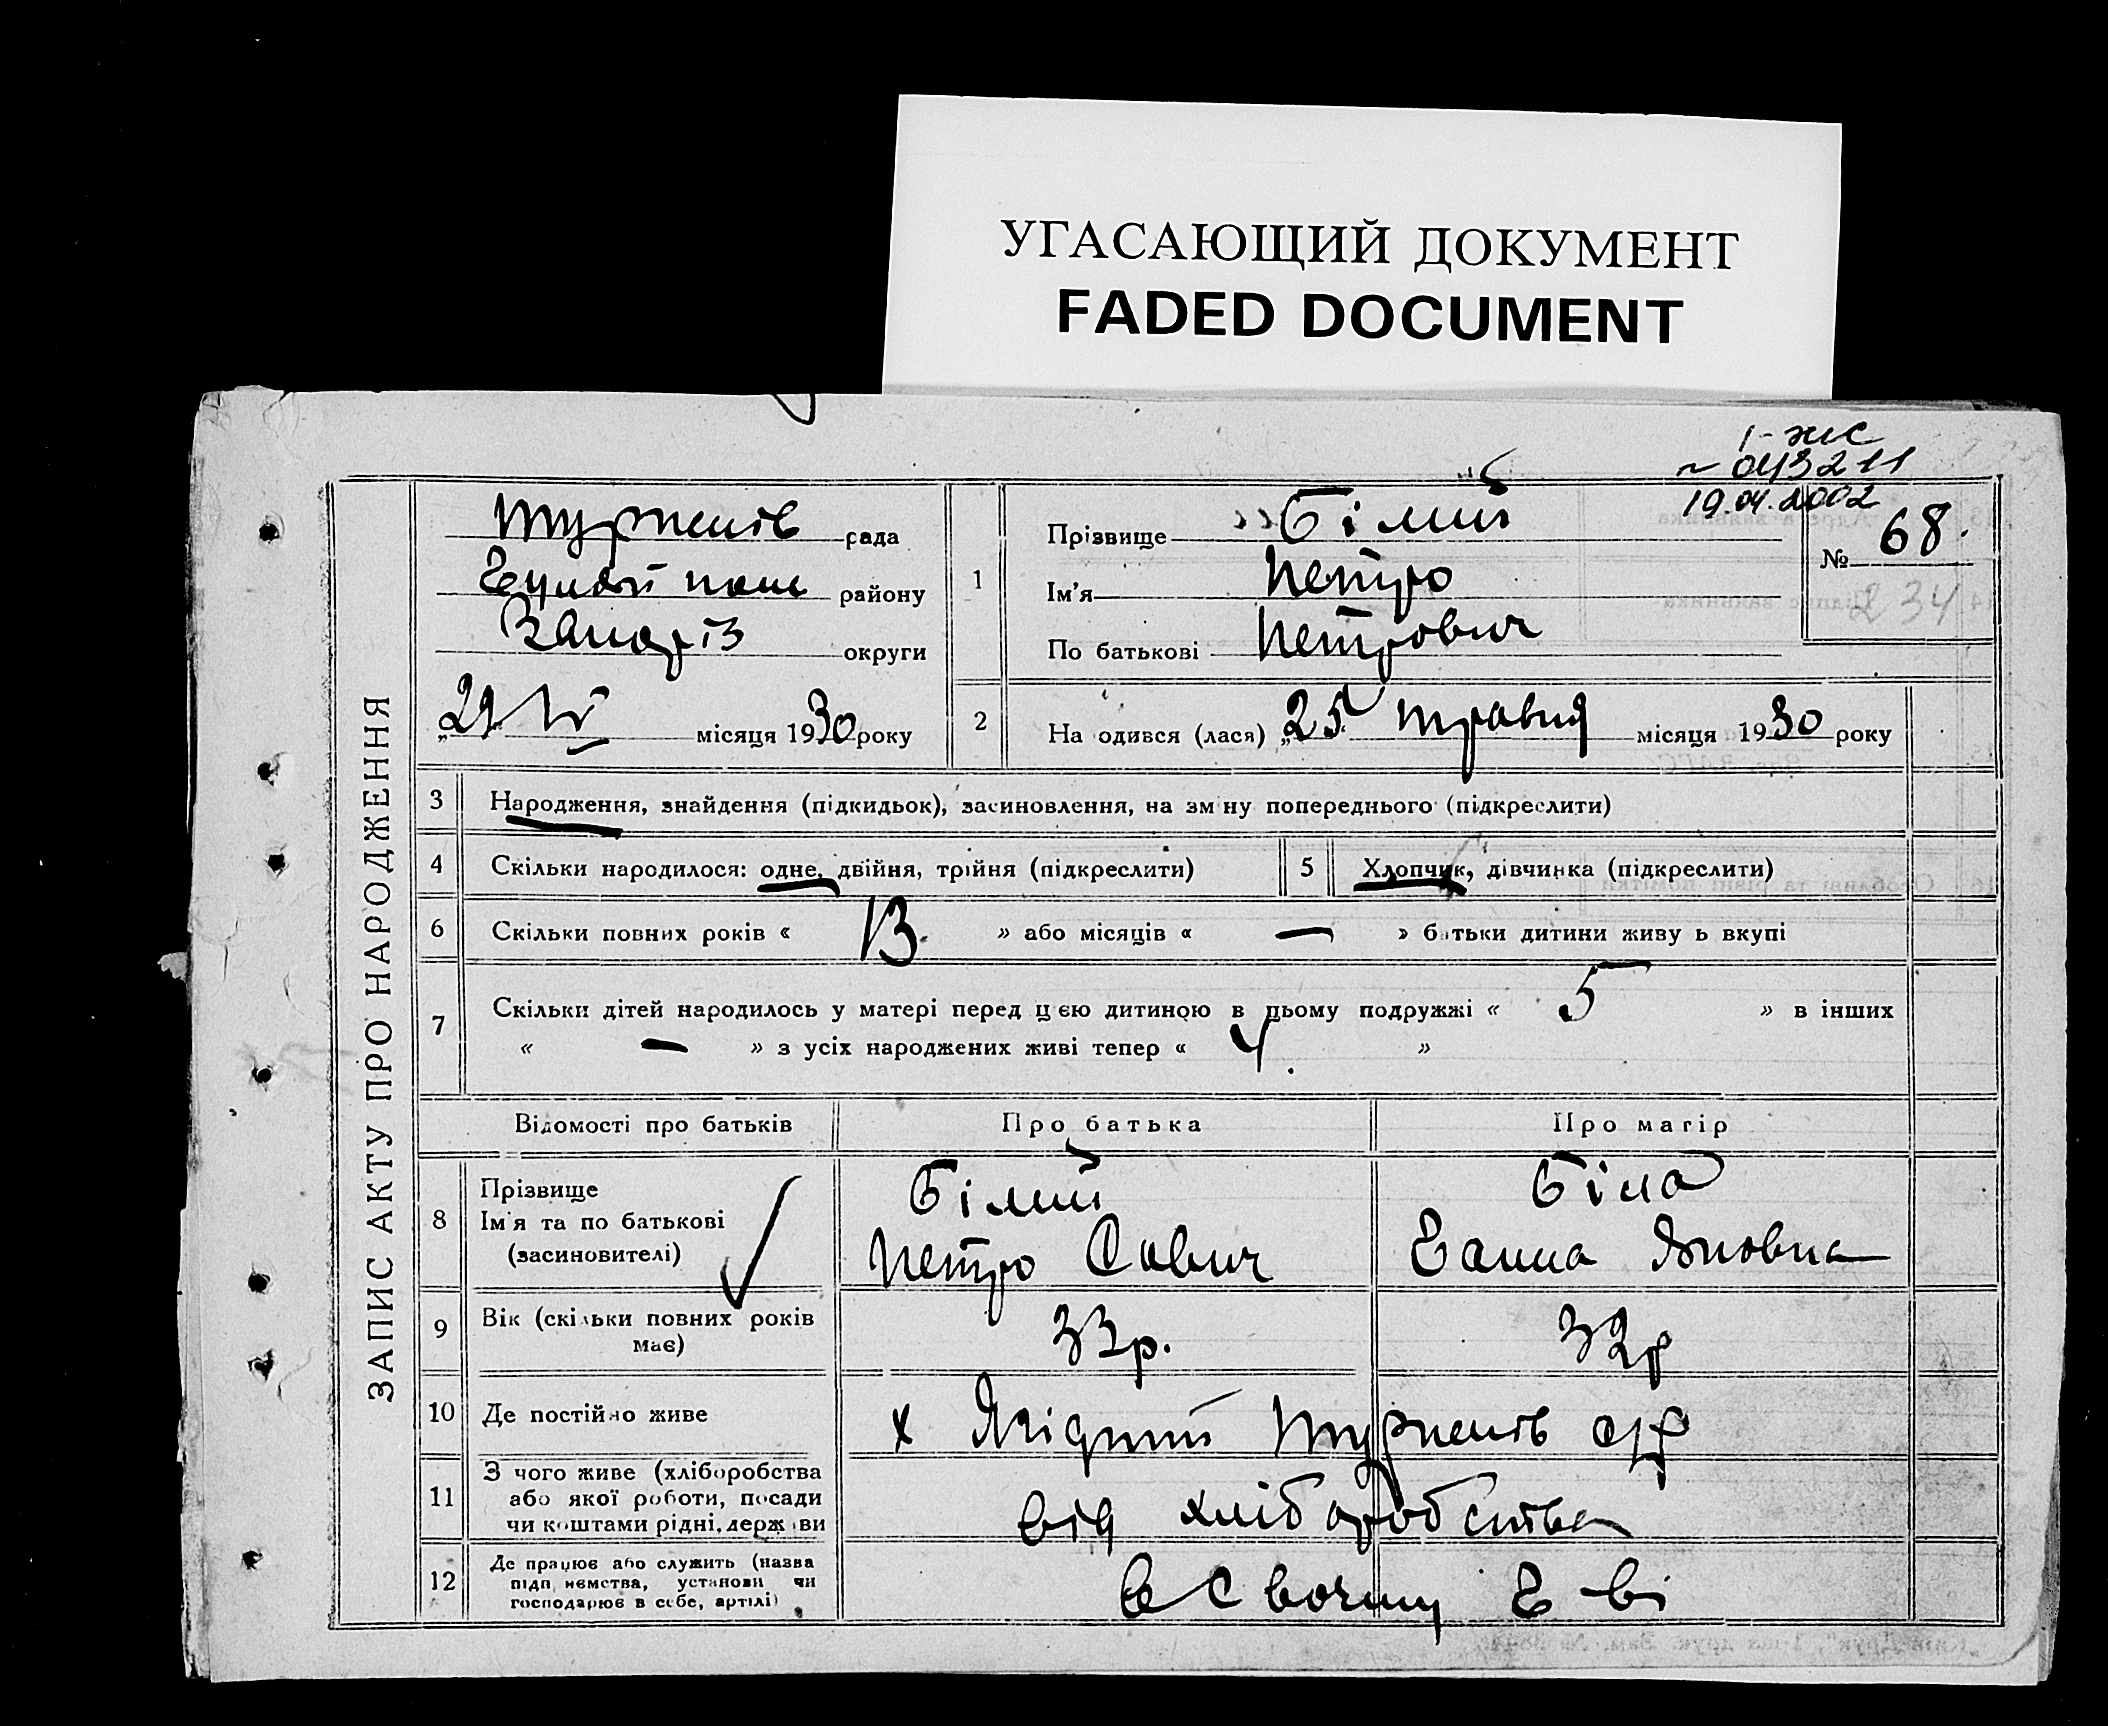 УГАСАЮЩИЙ ДОКУМЕНТ
FADED DOCUMENT
І-жс
~ 043211
19.04.2002
ЗАПИС АКТУ ПРО НАРОДЖЕННЯ
Туркенів рада
Гуляй поль району
Запоріз округи
„29 IV місяця 1930 року
1
Прізвище Білий
Ім'я Петро
По батькові Петрович
№ 68.
234
2
На одився (лася) „25 травня місяця 1930 року
3 Народження, знайдення (підкидьок), засиновлення, на зм ну попереднього (підкреслити)
4 Скільки народилося: одне, двійня, трійня (підкреслити) 5 Хлопчик, дівчинка (підкреслити)
6 Скільки повних років « 13 » або місяців « — » б тьки дитини живу ь вкупі
7 Скільки дітей народилось у матері перед цею дитиною в цьому подружжі « 5 » в інших
« — » з усіх народжених живі тепер « 4. »
Відомості про батьків Про батька Про матір
8 Прізвище
Ім'я та по батькові
(засиновителі)
Білий
Петро Савич
Біла
Ганна Яковна
9 Вік (скільки повних років має)
33р.
32р
10 Де постійно живе
х Туркенів с/р
11 З чого живе (хліборобства
або якої роботи, посади
чи коштами рідні, держ ви
від хліборобства
12 Де працює або служить (назва
підп иємства, установи чи
господарює в себе, артілі)
в своєму г-ві